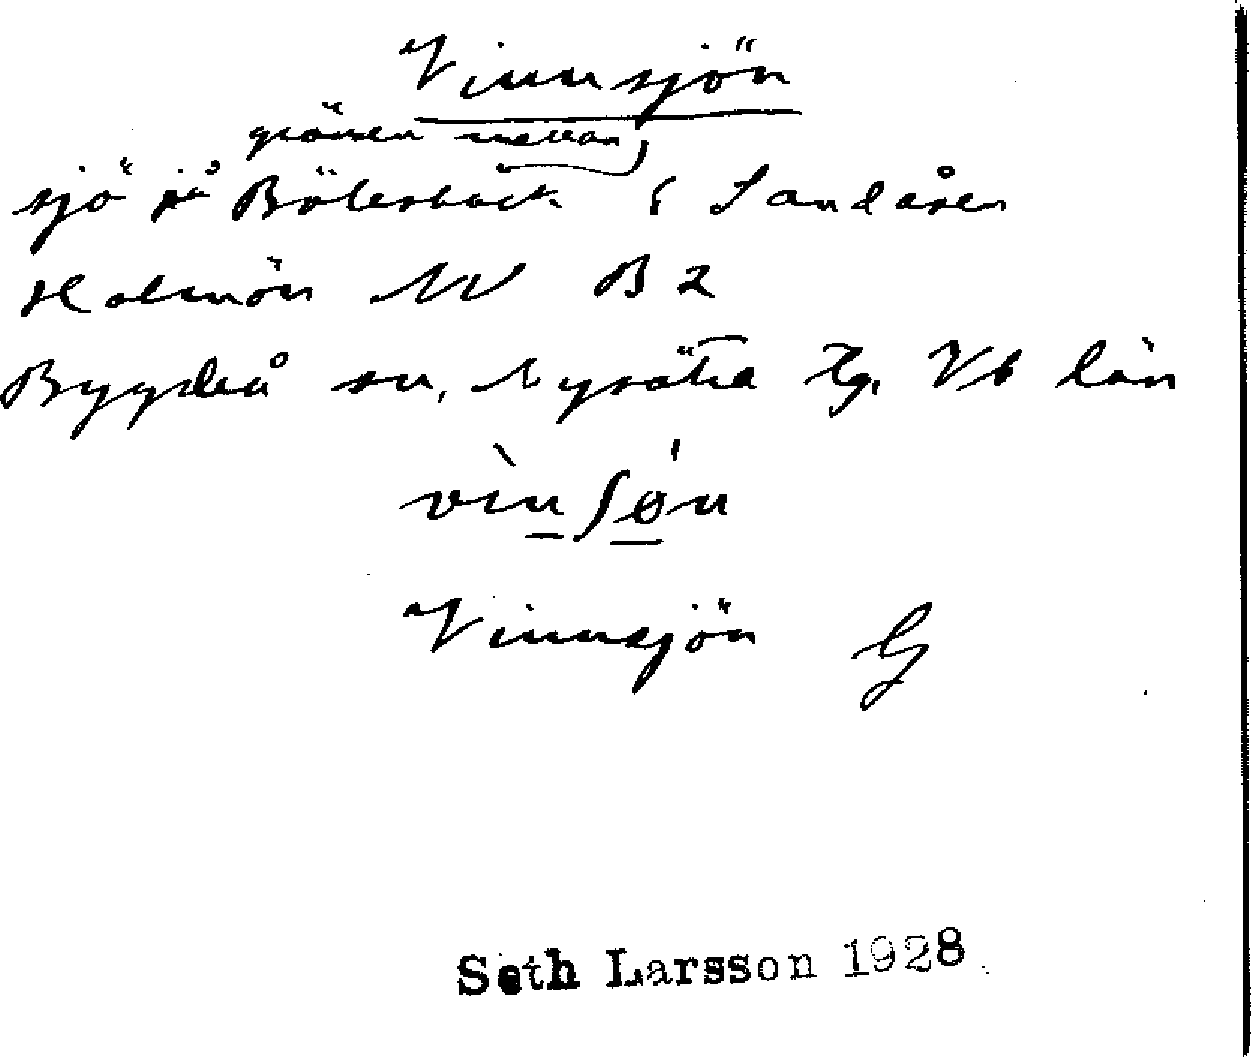 Vinnsjön
gränsen mellan
sjö på Bölesback & Sandåsen
Holmön NV B 2
Bygdeå sn, Nysätra tg. Vb län
vìnʃǿn
Vinnsjön G
Seth Larsson 1928